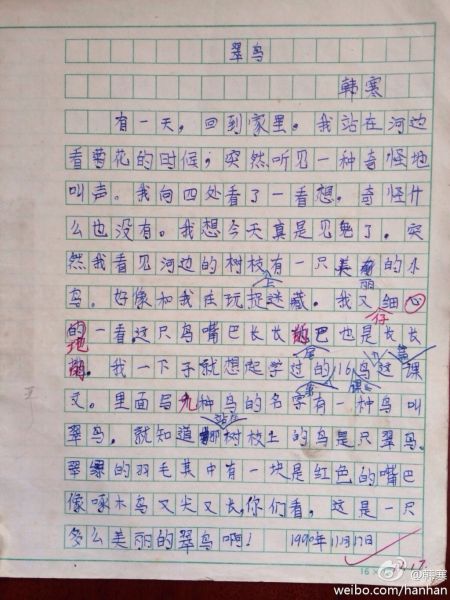 翠鸟
韩寒
有一天，回到家里。我站在河边
看菊花的时候，突然听见一种奇怪地
叫声。我向四处看了一看想。奇怪什
么也没有。我想今天真是见鬼了。突
然我看见河边的树枝有一只美丽的小
上
鸟。好像和我在玩捉迷藏。我又细心
仔
的一看这只鸟嘴巴长长的巴也是长长
地
尾
的。我一下子就想起学过的16鸟这课
第
课
文。里面写九种鸟的名字有一种鸟叫
站在
翠鸟，就知道那树枝上的鸟是只翠鸟。
翠绿的羽毛其中有一块是红色的嘴巴
像啄木鸟又尖又长，你们看，这是一只
多么美丽的翠鸟啊！ 1990年11月17日
16×
11.17
@韩寒
weibo.com/hanhan